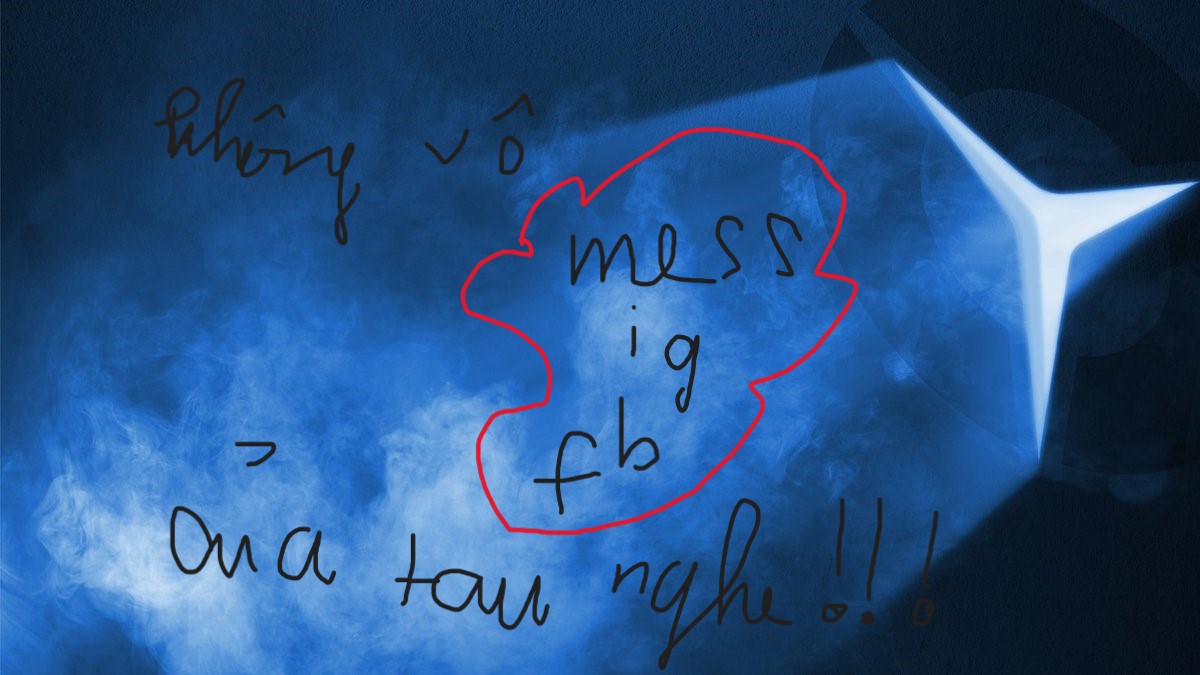 không vô
mess
ig
fb
của tau nghe!!!